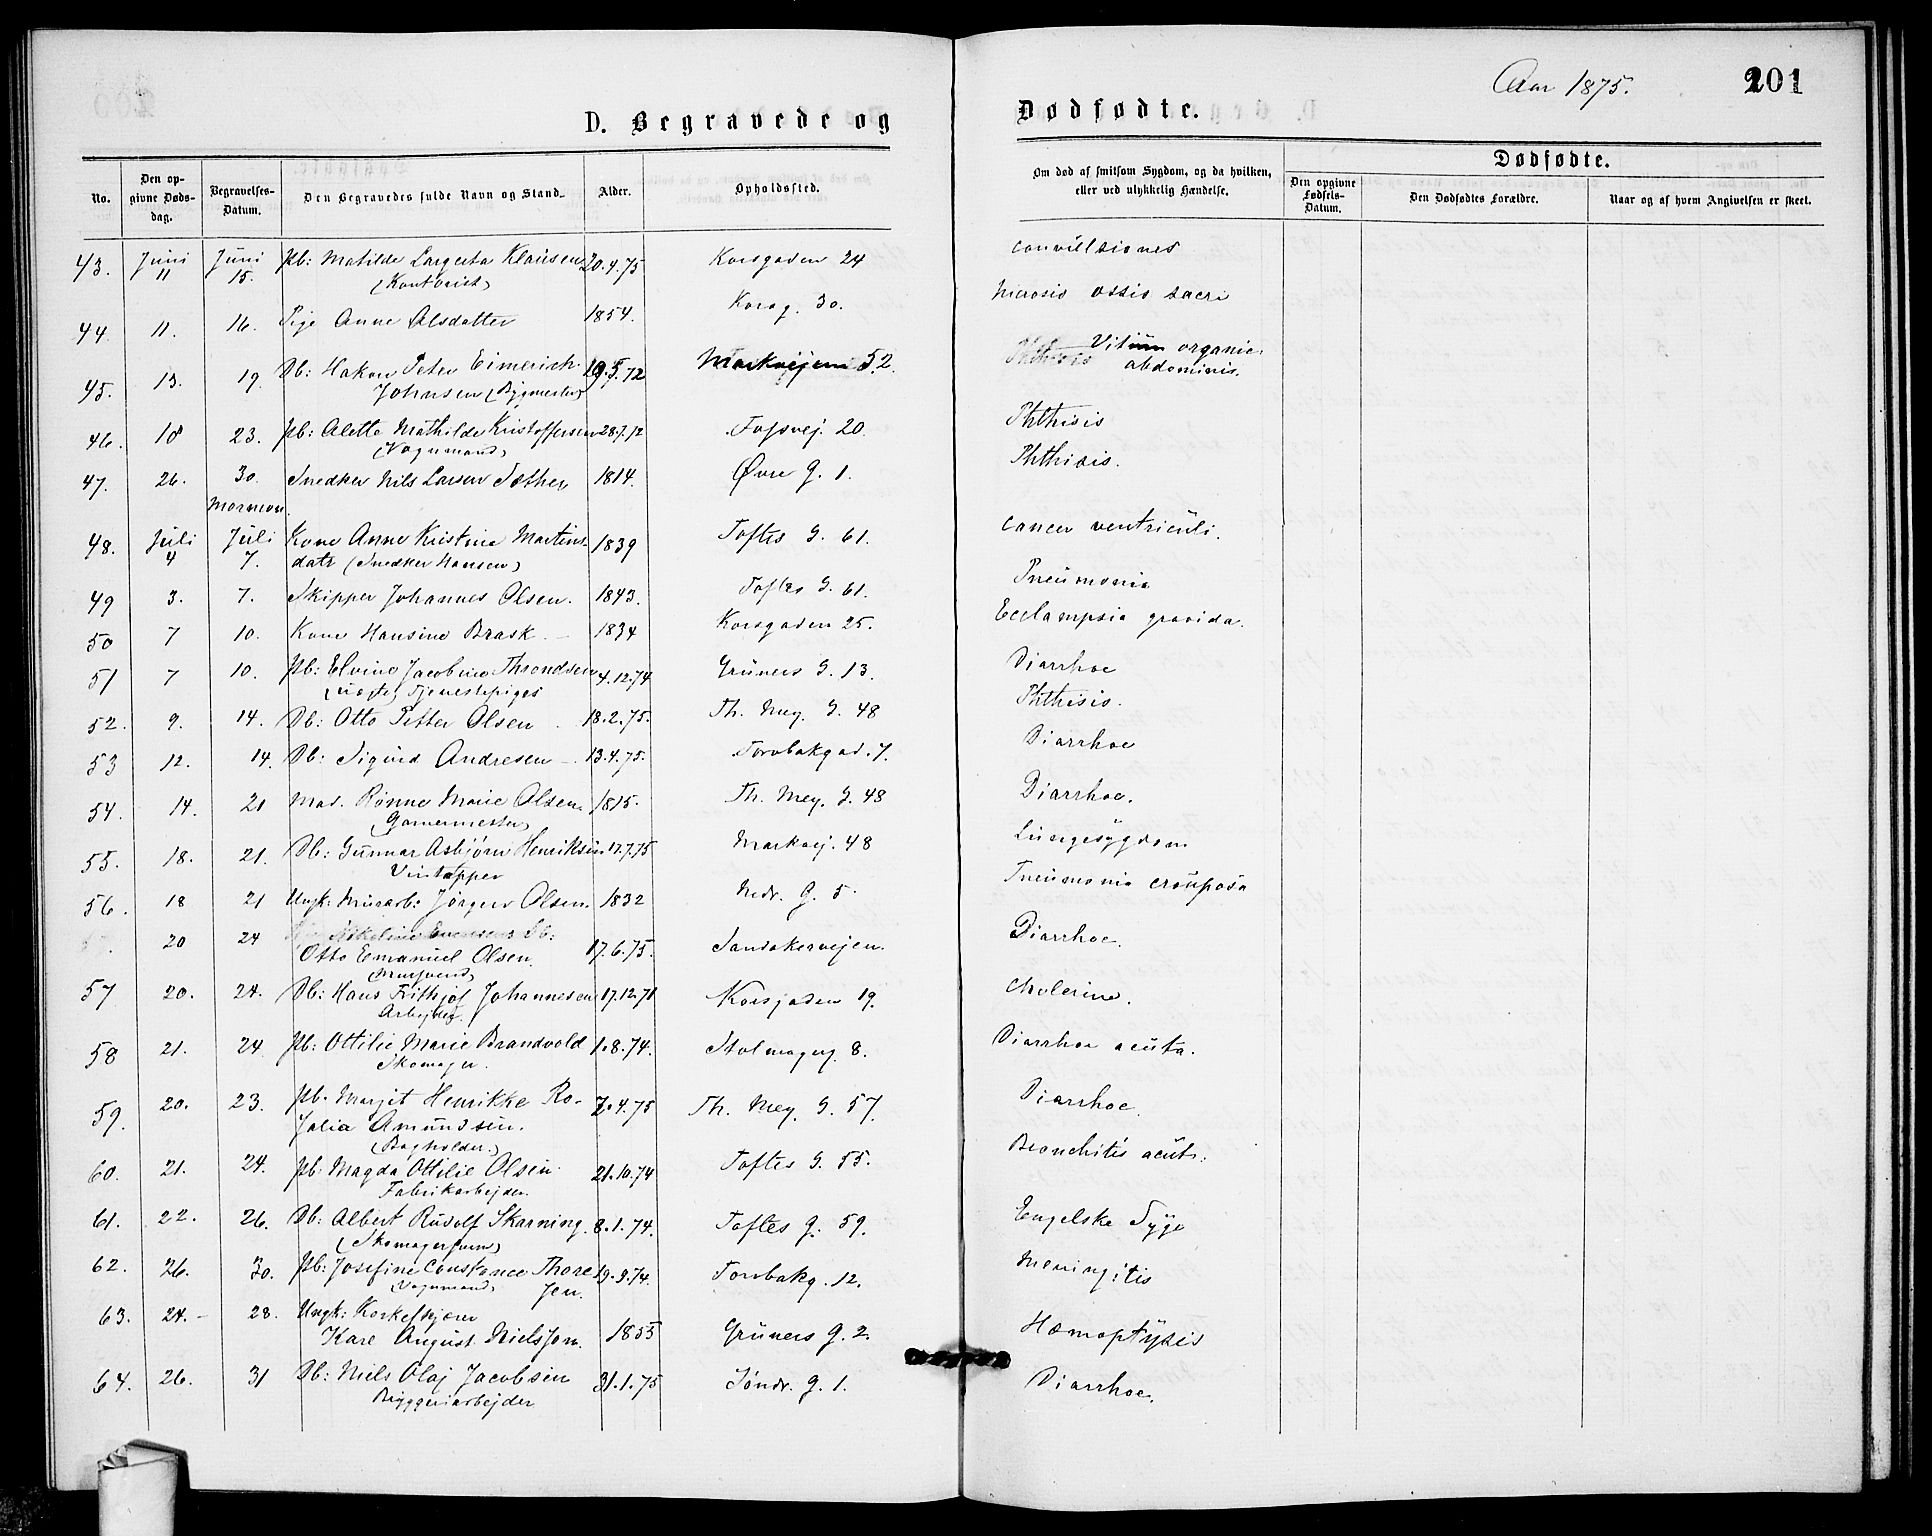 Aar 1875.
201
D. Begravede og
Dødfødte.
No.
Den op-
givne Døds-
dag.
Begravelses-
Datum.
Den Begravedes fulde Navn og Stand.
Alder.
Opholdssted.
Om død af smitsom Sygdom, og da hvilken,
eller ved ulykkelig Hændelse.
Dødfødte.
Den opgivne
Fødsels-
Datum.
Den Dødfødtes Forældre.
Naar og af hvem Angivelsen er skeet.
43. Juni 11 Juni 15. Pb: Matilde Lagerta Klausen 20.4.75 Korsgaden 24 convulsiones
(Kontorist)
44. 11. 16. Pige Anne Olsdatter 1854. Korsg. 30. Necrosis ossis sacri
45. 13. 19. Db: Hakon Peter Eimerich 19.5.72 Markvejen 52. Vitium organic.
Johnsen (Bygmester) abdominis.
46. 18 23. Pb: Alette Mathilde Kristoffersen 28.7.72 Fossvej. 20. Phthisis
(Vognmand)
47. 26. 30. Snedker Nils Larsen Sæther 1814. Øvre G. 1. Phthisis.
Mormon.
48. Juli 4 Juli 7. Kone Anne Kristine Martins- 1839 Toftes G. 61. Cancer ventriculi.
datr (Snedker Hansen)
49 3. 7. Skipper Johannes Olsen. 1843. Toftes G. 61. Pneumonia
50 7 10. Kone Hansine Brask. 1834 Korsgaden 25. Ecclampsia gravida.
51 7 10. Pb: Elvine Jacobine Throndsen 4.12.74 Grüners G. 13. Diarrhoe
(uægte) Tjenestepiges
52. 9. 14. Db: Otto Petter Olsen 18.2.75. Th. Mey. G. 48 Phthisis.
53 12. 14. Db: Sigurd Andresen 13.4.75. Torvbakgad. 7. Diarrhoe
54. 14. 21 Mad. Rønne Marie Olsen 1815. Th. Mey. G. 48 Diarrhoe.
(Garvermester)
55. 18. 21. Db: Gunnar Asbjørn Henriksen 17.7.75 Markvej. 48 Lungesygdom
Vintapper
56. 18 21 Ungk: Murarb: Jørgen Olsen. 1832 Nedr. G. 5. Pneumonia crouposa
20 24 Db:
Otto Emanuel Olsen. 17.6.75. Sandakervejen. Diarrhoe.
(Mursvend)
57 20. 24. Db: Hans Frithjof Johannesen 17.12.71 Korsgaden 19. Cholerine.
Arbejder.
58 21. 24 Pb: Ottilie Marie Brandvold 1.8.74. Stolmagerg. 8. Diarrhoe acuta.
Skomager.
59. 20. 23. Pb. Margit Henrikke Ro- 2.4.75 Th. Mey. G. 57. Diarrhoe.
salia Amundsen.
(Bogholder.)
60. 21. 24. Pb: Magda Ottilie Olsen 21.10.74 Toftes G. 55. Bronchitis acut.
Fabrikarbejder.
61. 22. 26. Db: Albert Rudolf Skarning. 8.1.74. Toftes G. 59. Engelske Syge
(Skomagersvend)
62. 26. 30. Pb: Josefine Constance Thore 19.9.74. Torvbakg. 12. Meningitis
(Vognmand) sen.
63. 24. 28. Ungk: Korkeskjærer
Karl August Nielsson. 1855 Grüners G. 2. Hæmoptysis
64. 26. 31 Db: Niels Olaj Jacobsen 31.1.75 Søndr. G. 1. Diarrhoe.
Bryggeriarbejder